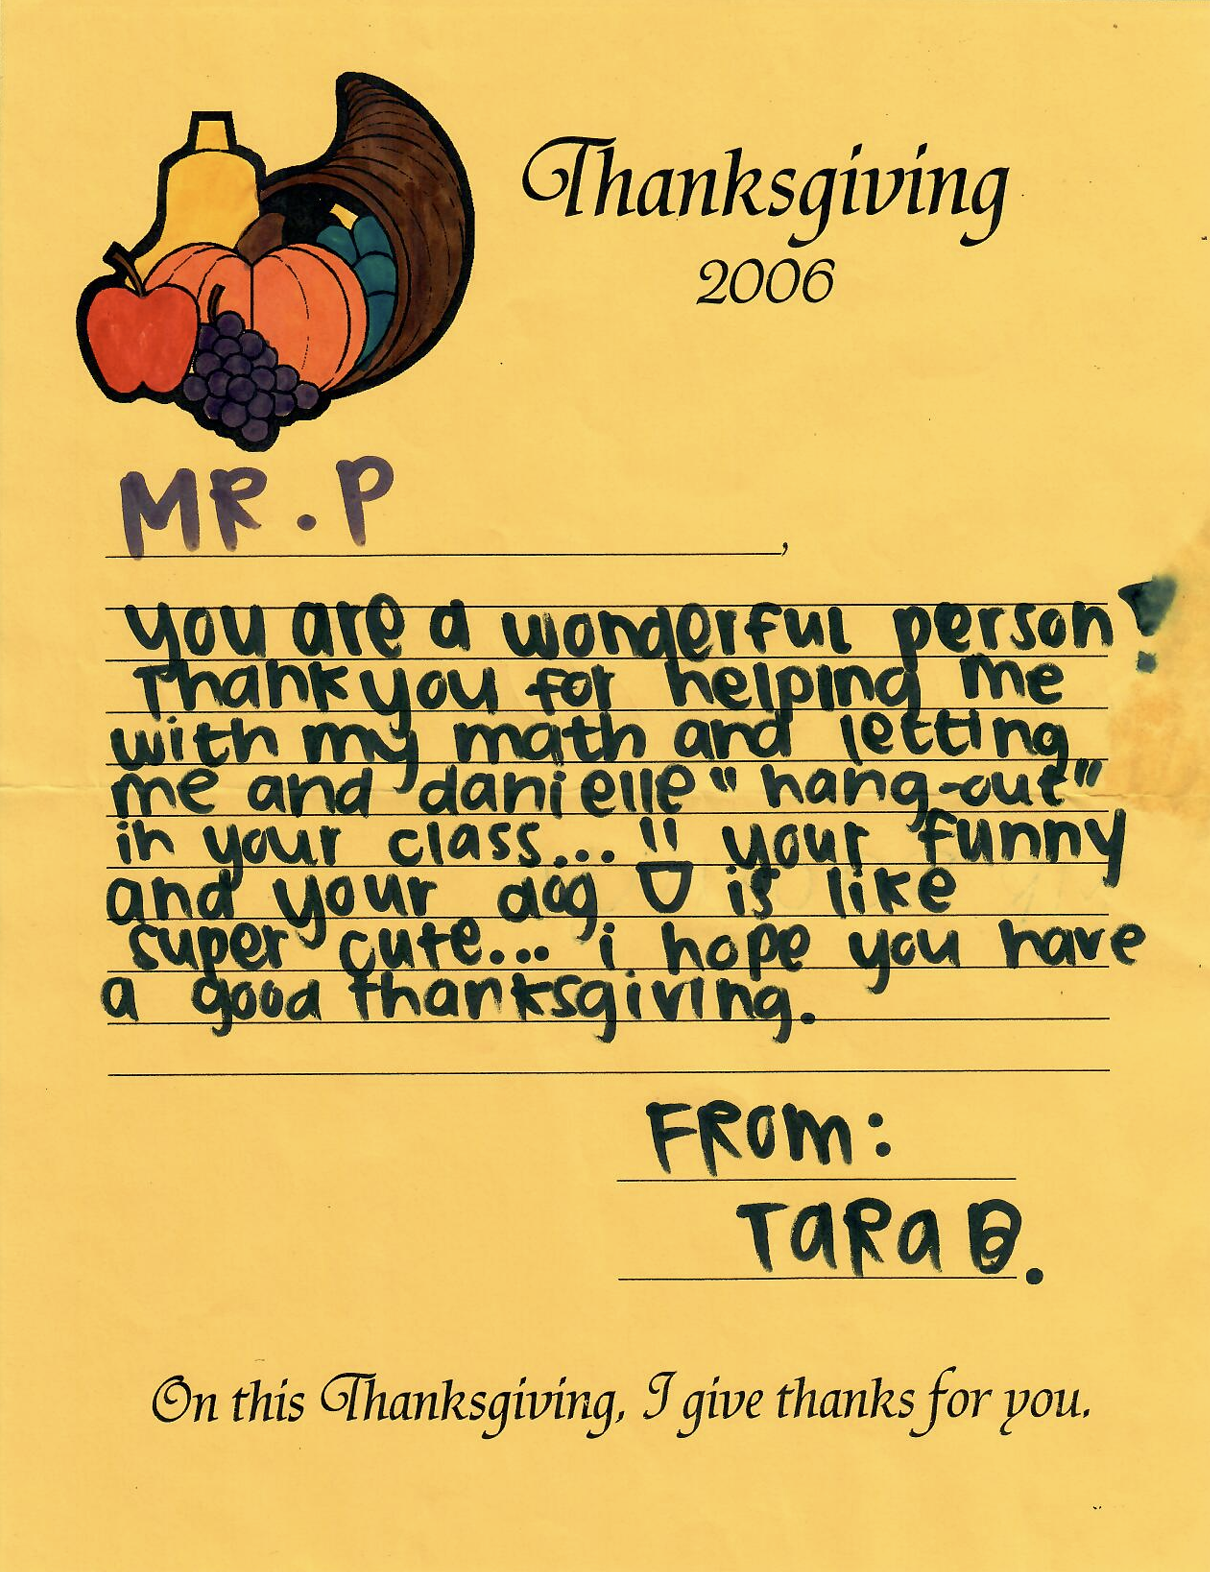 Thanksgiving
2006
MR. P
,
you are a wonderful person!
Thank you for helping me
with my math and letting
me and danielle "hang-out"
in your class... your funny
and your dog is like
super cute... i hope you have
a good thanksgiving.
FROM:
TaRa B.
On this Thanksgiving, I give thanks for you.